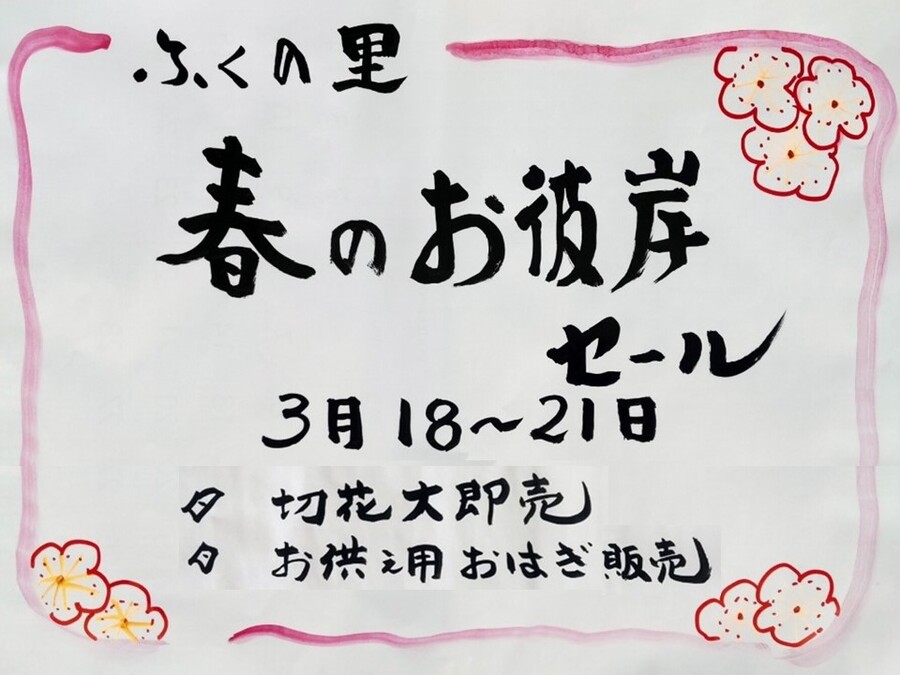 ふくの里
春のお彼岸
セール
3月18～21日
夕 切花大即売
夕 お供え用おはぎ販売